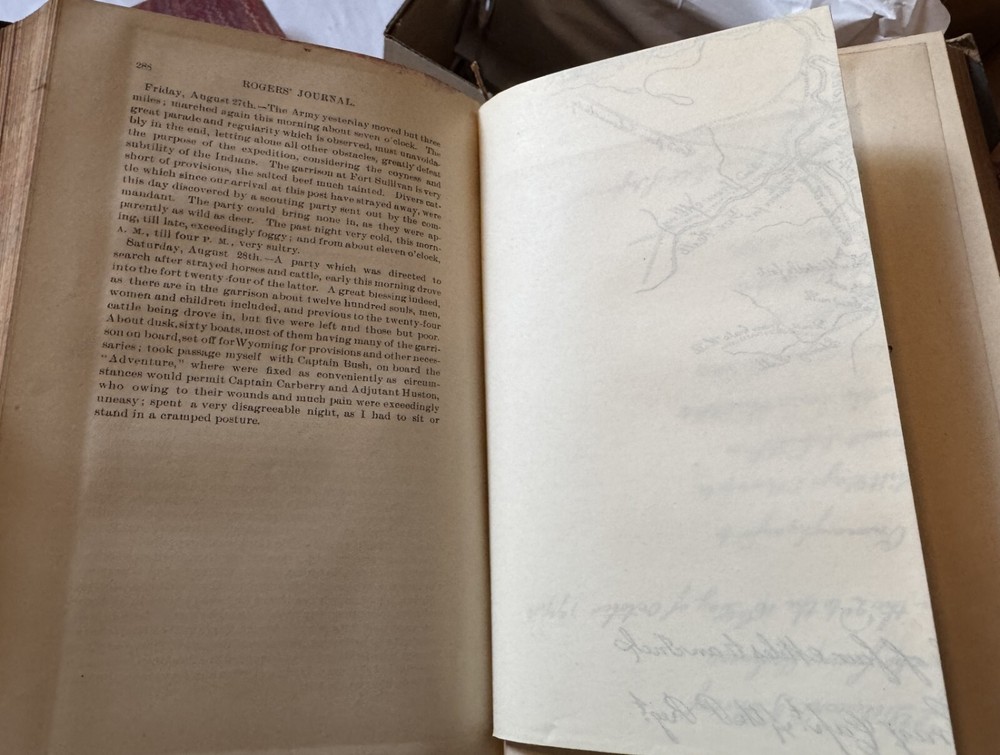 288
ROGERS' JOURNAL.
Friday, August 27th.—The Army yesterday moved but three
miles; marched again this morning about seven o'clock. The
great parade and regularity which is observed, must unavoida-
bly in the end, letting alone all other obstacles, greatly defeat
the purpose of the expedition, considering the coyness and
subtility of the Indians. The garrison at Fort Sullivan is very
short of provisions, the salted beef much tainted. Divers cat-
tle which since our arrival at this post have strayed away, were
this day discovered by a scouting party sent out by the com-
mandant. The party could bring none in, as they were ap-
parently as wild as deer. The past night very cold, this morn-
ing, till late, exceedingly foggy; and from about eleven o'clock,
A. M., till four P. M., very sultry.
Saturday, August 28th.—A party which was directed to
search after strayed horses and cattle, early this morning drove
into the fort twenty-four of the latter. A great blessing indeed,
as there are in the garrison about twelve hundred souls, men,
women and children included, and previous to the twenty-four
cattle being drove in, but five were left and those but poor.
About dusk, sixty boats, most of them having many of the garri-
son on board, set off for Wyoming for provisions and other neces-
saries; took passage myself with Captain Bush, on board the
"Adventure," where were fixed as conveniently as circum-
stances would permit Captain Carberry and Adjutant Huston,
who owing to their wounds and much pain were exceedingly
uneasy; spent a very disagreeable night, as I had to sit or
stand in a cramped posture.